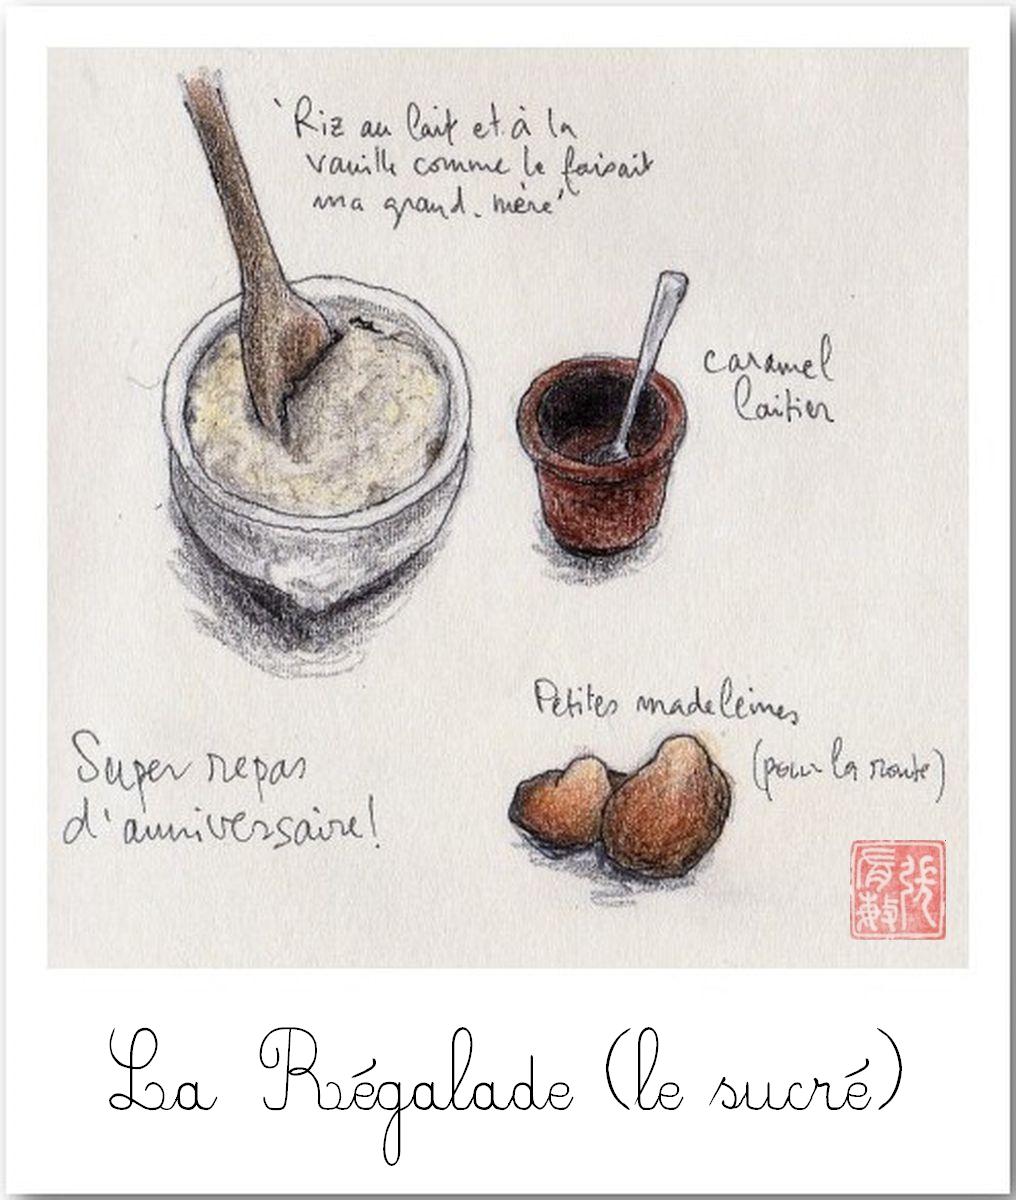 'Riz au lait et à la
vanille comme le faisait
ma grand-mère'
caramel
laitier
Petites madeleines
(pour la route)
Super repas
d'anniversaire!
La Régalade (le sucré)